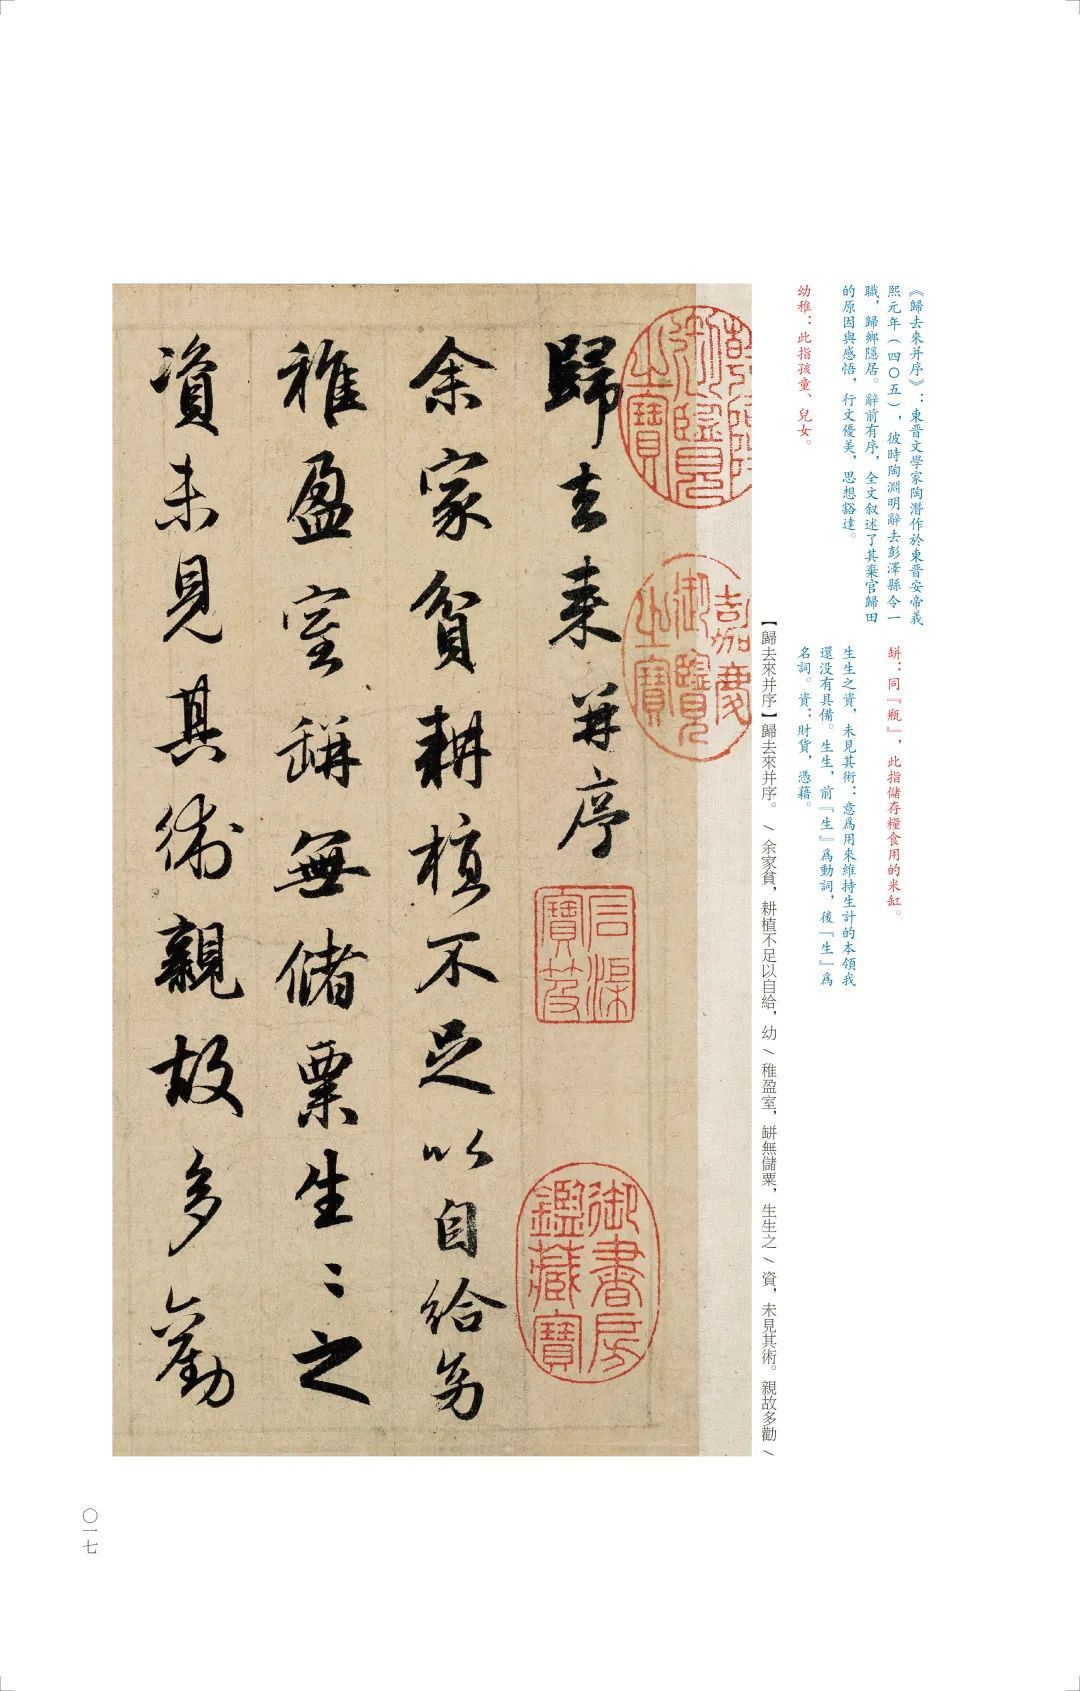 《歸去來并序》：東晋文學家陶潛作於東晋安帝義
熙元年（四〇五），彼時陶淵明辭去彭澤縣令一
職，歸鄉隱居。辭前有序，全文叙述了其棄官歸田
的原因與感悟，行文優美，思想豁達。
幼稚：此指孩童、兒女。
缾：同『瓶』，此指儲存糧食用的米缸。
生生之資，未見其術：意爲用來維持生計的本領我
還没有具備。生生，前『生』爲動詞，後『生』爲
名詞。資：財貨，憑藉。
【歸去來并序】歸去來并序。/余家貧，耕植不足以自給，幼/稚盈室，缾無儲粟，生生之/資，未見其術。親故多勸/
嘉慶御覽之寶
石渠寶笈
御書房鑑藏寶
歸去來并序
余家貧耕植不足以自給幼
稚盈室缾無儲粟生〻之
資未見其術親故多勸
〇一七